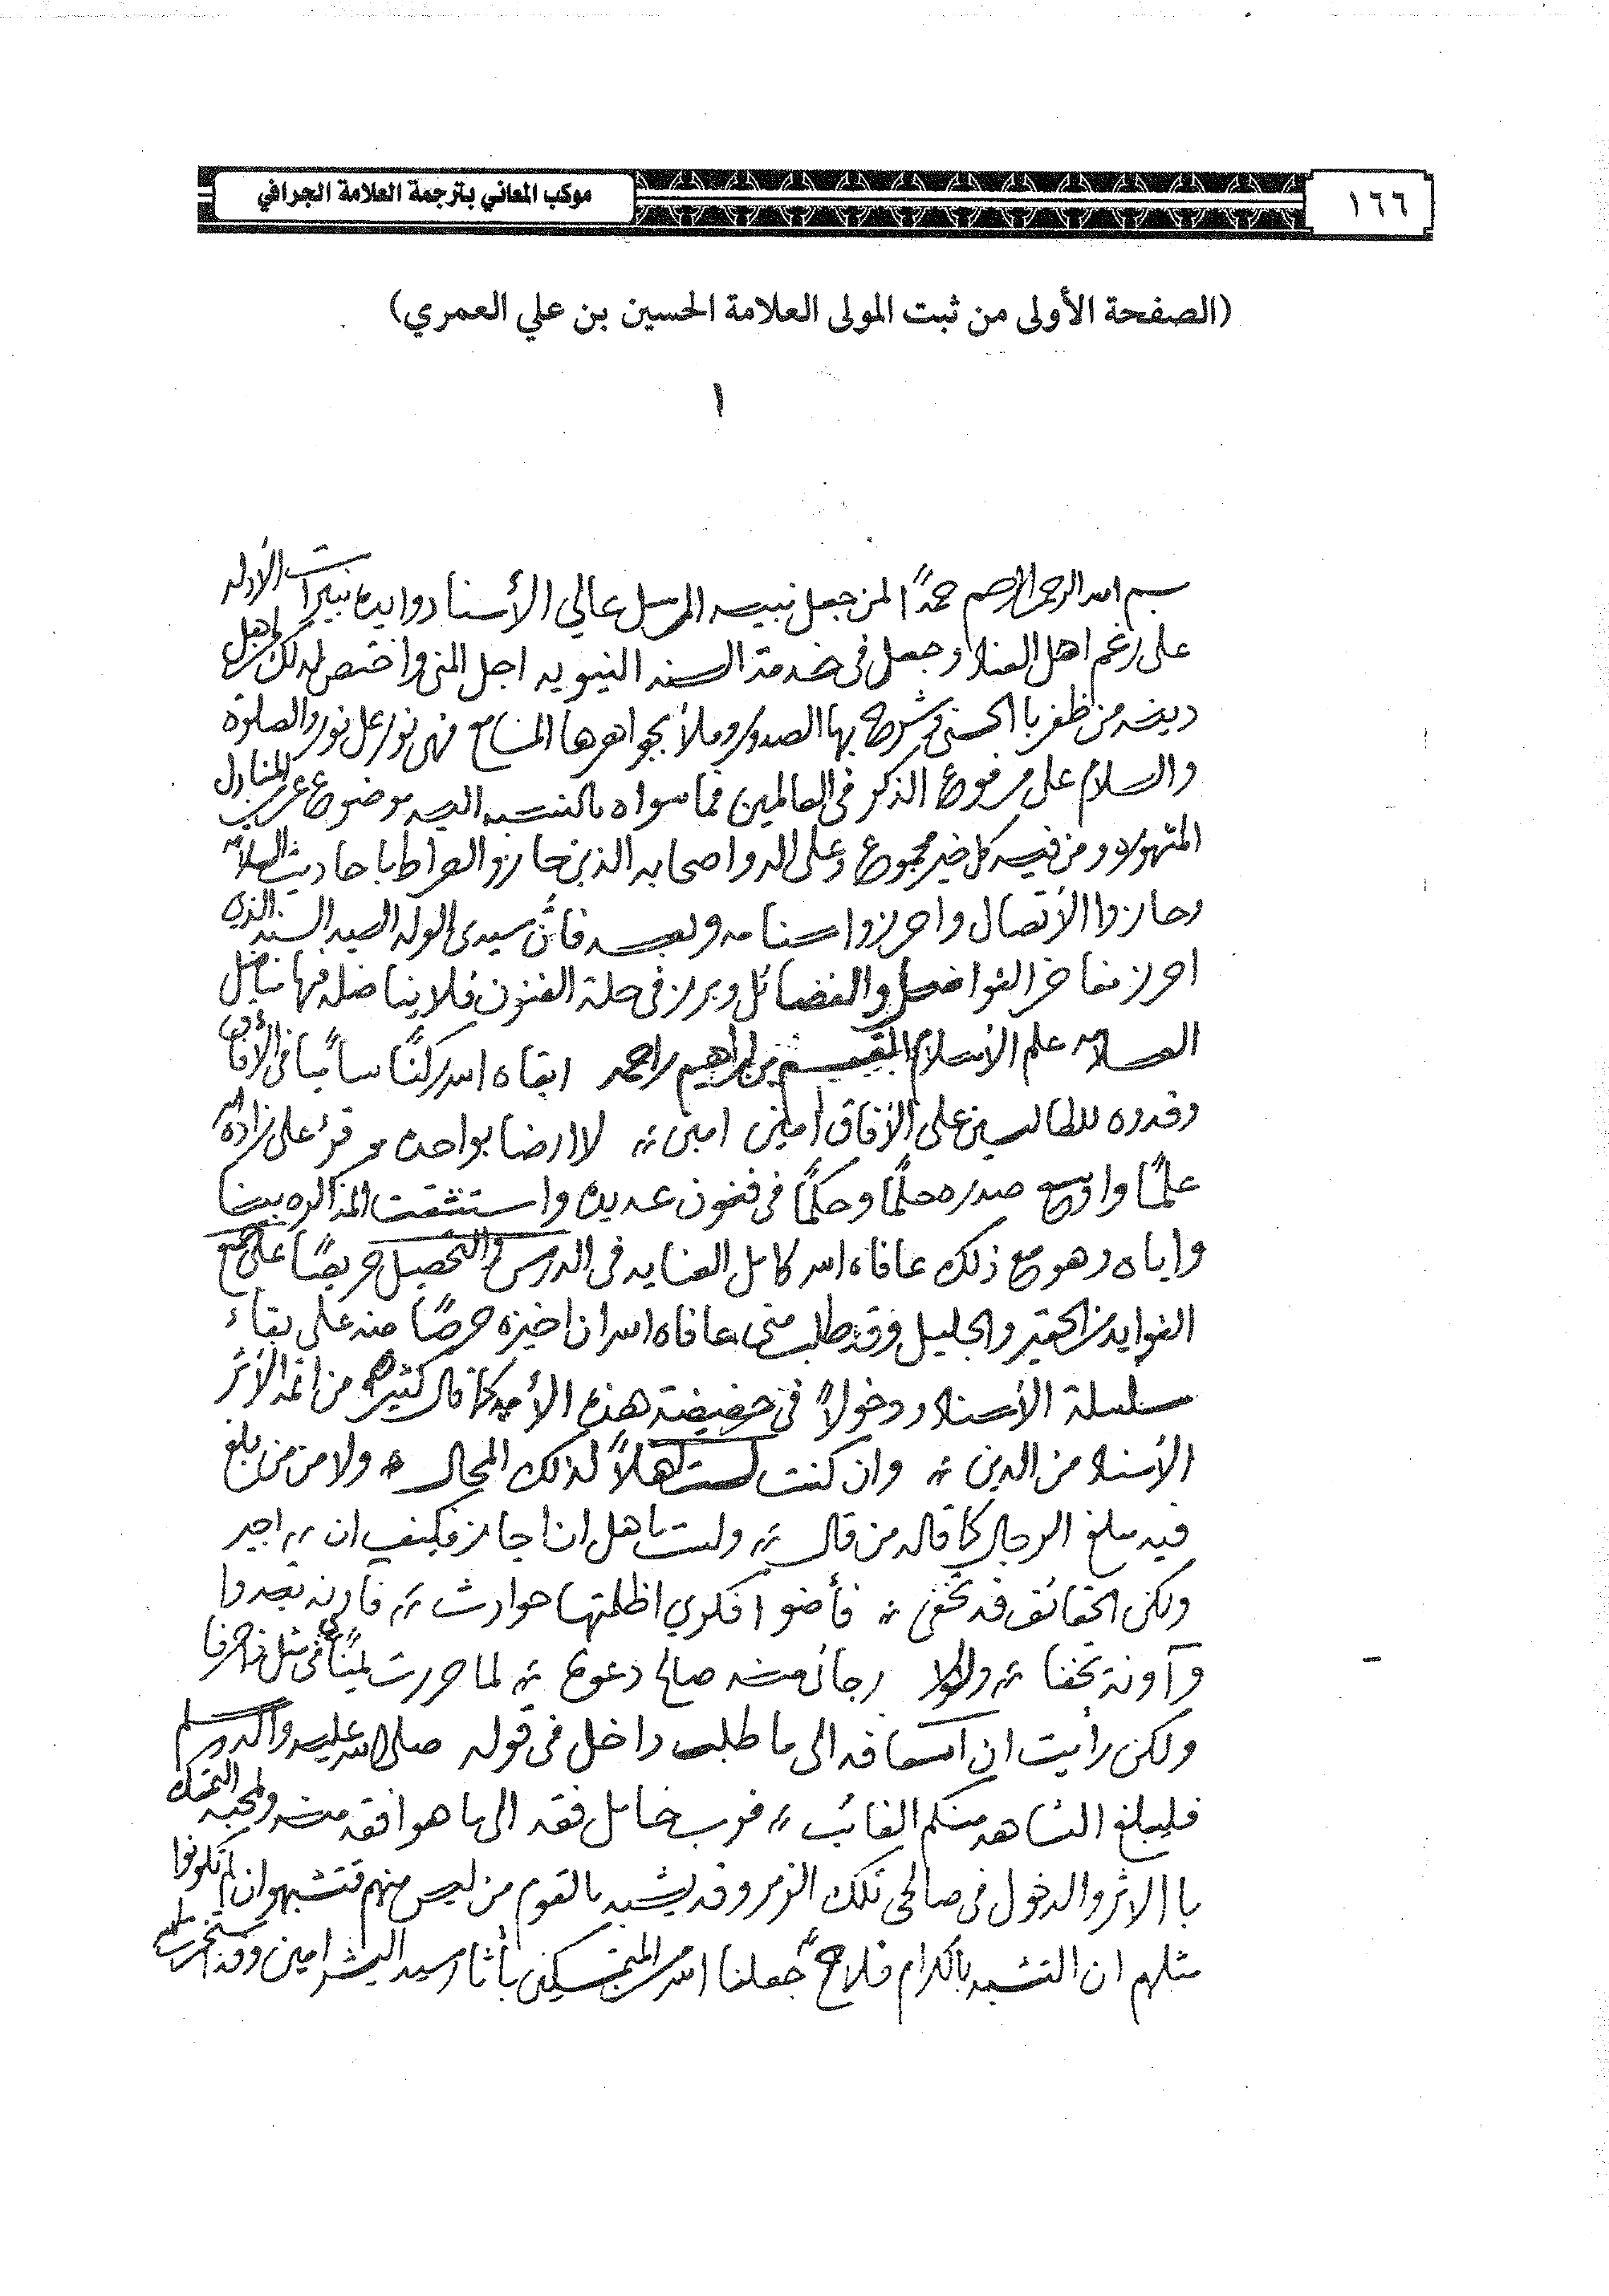 ١٦٦
موكب المعاني بترجمة العلامة الجرافي
(الصفحة الأولى من ثبت المولى العلامة الحسين بن علي العمري)
١
بسم الله الرحمن الرحيم حمدًا لمن جعل نبيه المرسل عالي الأسناد وايده بنيرات الأدله
على رغم اهل العناد وجعل في خدمة السنه النبويه اجل المنن واختص لذلك من اهل
دينه من ظفر با الحسنى وشرح بها الصدور وملأ بجواهرها المسامع فهي نور على نور والصلوة
والسلام على مرفوع الذكر في العالمين فما سواه بالنسبه اليه موضوع
كل خير مجموع وعلى اله واصحابه الذين با حاديث
وحازوا الأتصال واحرزوا سنامه وبعد فأن سيدي الولد السيد الذي
احرز مفاخر الفواضل والفضائل وبرز في حلبة الفنون فلا يناضله فيها مناضل
العلامه علم الأسلام القسيم بن ابراهيم بن احمد ابقاه الله ركنًا في الأفاق
وقدوه للطالبين على الأفاق آمين امين لا ارضا بواحدة قرء علي زاده الله
علمًا واوسع صدره حلمًا وحكمًا في فنون عديده واستشقت المذاكره بيننا
واياه وهو مع ذلك عافاه الله كامل العنايه في الدرس والتحصيل حريصًا على جمع
الفوايد من الحقير والجليل وقد طلب مني عافاه الله ان اجيزه حرصًا منه على بقاء
سلسلة الأسناد ودخولًا في هذه الأمه كما قال كثير من ائمة الأثر
الأسناد من الدين وان كنت لست اهلًا لذلك المجال ولا من من بلغ
فيه مبلغ الرجال كما قاله من قال ولست باهل ان اجاز فكيف ان اجيز
ولكن الحقائق قد تخفى فأضوا فكري اظلمتها حوادث فآونه تبدوا
وآونة تخفا ولولا رجائي منه صالح دعوة لما حررت يمناي في مثل ذا حرفا
ولكن رأيت ان اسعافه الى ما طلب داخل في قوله صلى الله عليه واله وسلم
فليبلغ الشاهد منكم الغائب فرب حامل فقه الى ما هو افقه منه ولمحبة التمسك
با الاثر والدخول في صالحي تلك الزمر وقد يشبه بالقوم من ليس منهم فتشبهوا ان لم تكونوا
مثلهم ان التشبه بالكرام فلاح جعلنا الله من المتمسكين بأثار سيد البشر امين وقد استخرت